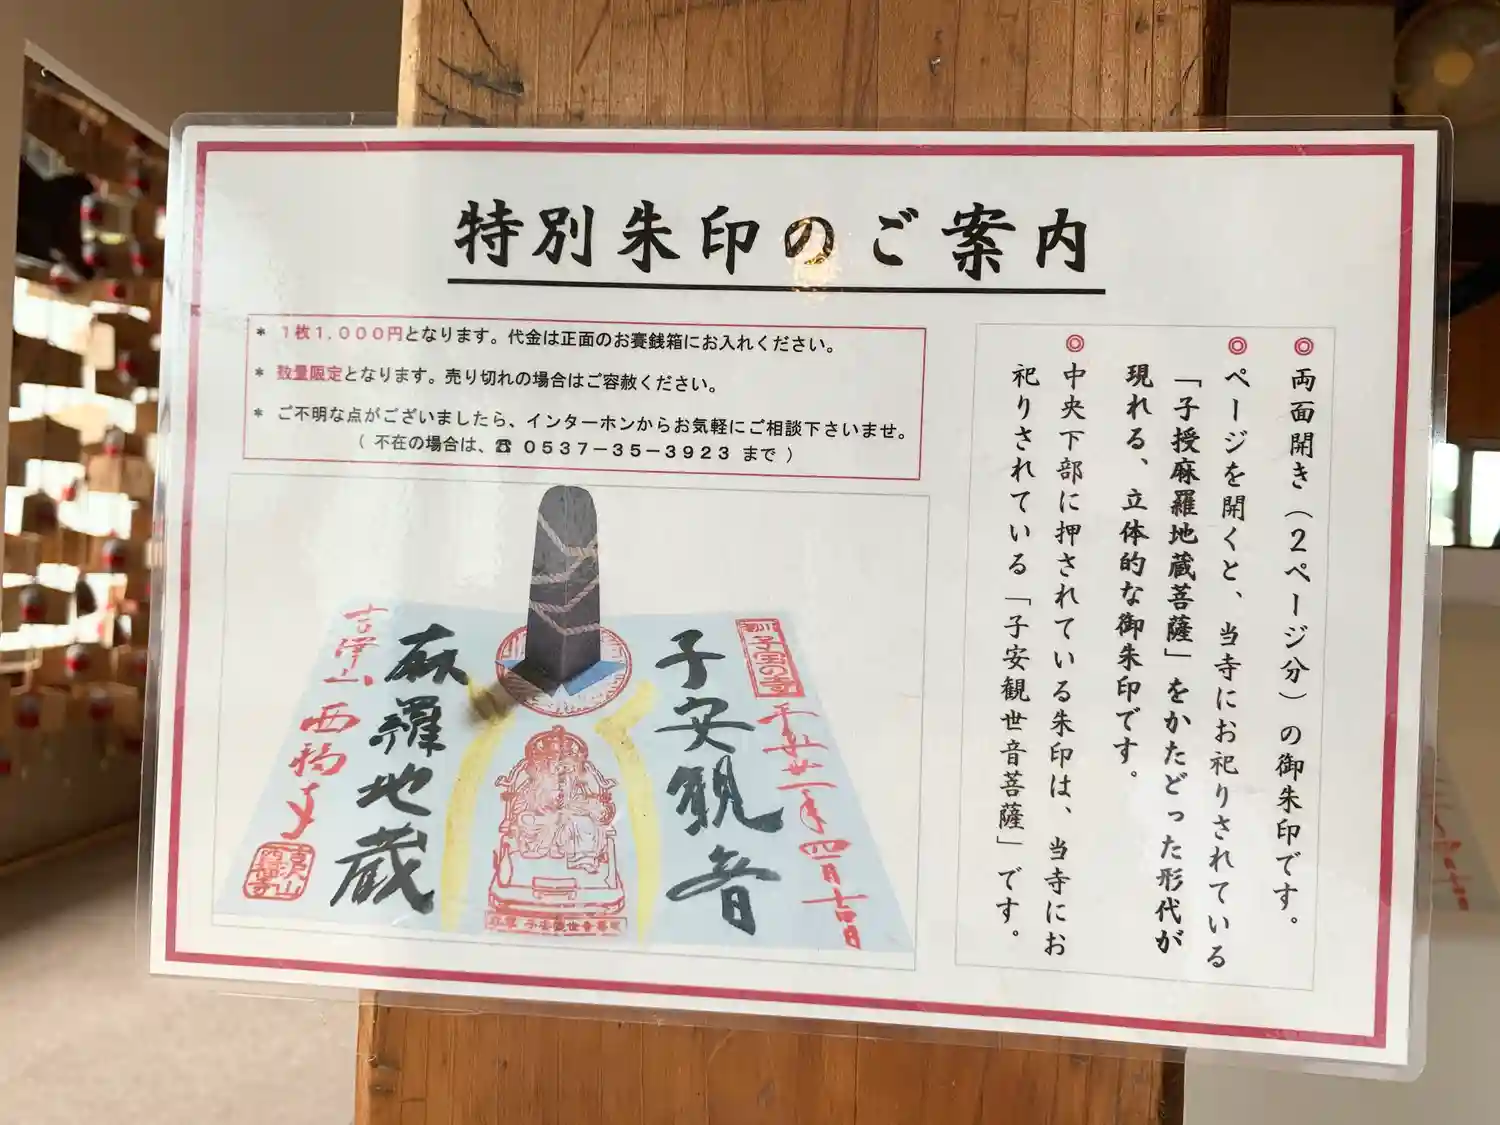 特別朱印のご案内
＊ １枚１，０００円となります。代金は正面のお賽銭箱にお入れください。
＊ 数量限定となります。売り切れの場合はご容赦ください。
＊ ご不明な点がございましたら、インターホンからお気軽にご相談下さいませ。
（ 不在の場合は、☎ ０５３７－３５－３９２３ まで ）
◎両面開き（２ページ分）の御朱印です。
◎ページを開くと、当寺にお祀りされている
「子授麻羅地蔵菩薩」をかたどった形代が
現れる、立体的な御朱印です。
◎中央下部に押されている朱印は、当寺にお
祀りされている「子安観世音菩薩」です。
子宝の寺
子安観音
麻羅地蔵
吉澤山
西福寺